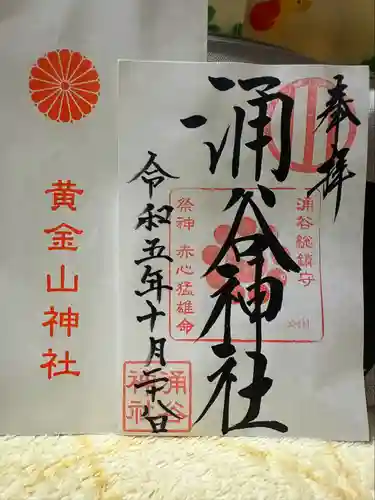 奉拝
涌谷総鎮守
涌谷神社
祭神 赤心猛雄命
令和五年十月二十八日
涌谷
神社
黄金山神社